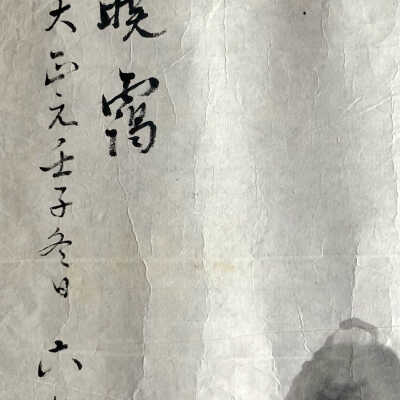 暁靄
大正元壬子冬日 六